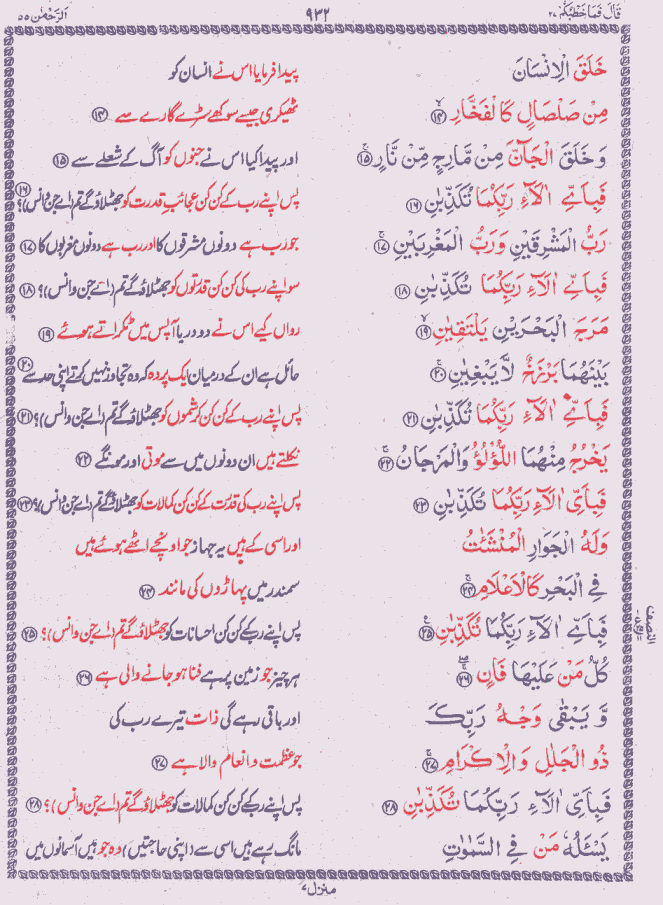 قَالَ فَمَا خَطْبُكُمْ ٢٧
٩٣٢
اَلرَّحْمٰن ٥٥
خَلَقَ الْاِنْسَانَ
پیدا فرمایا اس نے انسان کو
مِنْ صَلْصَالٍ كَالْفَخَّارِ ۙ ﴿١٤﴾
ٹھیکری جیسے سوکھے سڑے گارے سے ﴿١٤﴾
وَخَلَقَ الْجَآنَّ مِنْ مَّارِجٍ مِّنْ نَّارٍ ۚ ﴿١٥﴾
اور پیدا کیا اس نے جنوں کو آگ کے شعلے سے ﴿١٥﴾
فَبِاَيِّ اٰلَآءِ رَبِّكُمَا تُكَذِّبٰنِ ﴿١٦﴾
پس اپنے رب کے کن کن عجائبِ قدرت کو جھٹلاؤ گے تم (اے جن وانس)؟ ﴿١٦﴾
رَبُّ الْمَشْرِقَيْنِ وَرَبُّ الْمَغْرِبَيْنِ ۚ ﴿١٧﴾
جو رب ہے دونوں مشرقوں کا اور رب ہے دونوں مغربوں کا ﴿١٧﴾
فَبِاَيِّ اٰلَآءِ رَبِّكُمَا تُكَذِّبٰنِ ﴿١٨﴾
سو اپنے رب کی کن کن قدرتوں کو جھٹلاؤ گے تم (اے جن وانس)؟ ﴿١٨﴾
مَرَجَ الْبَحْرَيْنِ يَلْتَقِيٰنِ ۙ ﴿١٩﴾
رواں کیے اس نے دو دریا آپس میں ٹکراتے ہوئے ﴿١٩﴾
بَيْنَهُمَا بَرْزَخٌ لَّا يَبْغِيٰنِ ۚ ﴿٢٠﴾
حائل ہے ان کے درمیان ایک پردہ کہ وہ تجاوز نہیں کرتے اپنی حد سے ﴿٢٠﴾
فَبِاَيِّ اٰلَآءِ رَبِّكُمَا تُكَذِّبٰنِ ﴿٢١﴾
پس اپنے رب کے کن کن کرشموں کو جھٹلاؤ گے تم (اے جن وانس)؟ ﴿٢١﴾
يَخْرُجُ مِنْهُمَا اللُّؤْلُؤُ وَالْمَرْجَانُ ۚ ﴿٢٢﴾
نکلتے ہیں ان دونوں میں سے موتی اور مونگے ﴿٢٢﴾
فَبِاَيِّ اٰلَآءِ رَبِّكُمَا تُكَذِّبٰنِ ﴿٢٣﴾
پس اپنے رب کی قدرت کے کن کن کمالات کو جھٹلاؤ گے تم (اے جن وانس)؟ ﴿٢٣﴾
وَلَهُ الْجَوَارِ الْمُنْشَئٰتُ
اور اسی کے ہیں یہ جہاز جو اونچے اٹھے ہوئے ہیں
فِي الْبَحْرِ كَالْاَعْلَامِ ۚ ﴿٢٤﴾
سمندر میں پہاڑوں کی مانند ﴿٢٤﴾
فَبِاَيِّ اٰلَآءِ رَبِّكُمَا تُكَذِّبٰنِ ۧ ﴿٢٥﴾
پس اپنے رب کے کن کن احسانات کو جھٹلاؤ گے تم (اے جن وانس)؟ ﴿٢٥﴾
كُلُّ مَنْ عَلَيْهَا فَانٍ ۖ ﴿٢٦﴾
ہر چیز جو زمین پر ہے فنا ہو جانے والی ہے ﴿٢٦﴾
وَّيَبْقٰى وَجْهُ رَبِّكَ
اور باقی رہے گی ذات تیرے رب کی
ذُو الْجَلٰلِ وَالْاِكْرَامِ ۚ ﴿٢٧﴾
جو عظمت و انعام والا ہے ﴿٢٧﴾
فَبِاَيِّ اٰلَآءِ رَبِّكُمَا تُكَذِّبٰنِ ﴿٢٨﴾
پس اپنے رب کے کن کن کمالات کو جھٹلاؤ گے تم (اے جن وانس)؟ ﴿٢٨﴾
يَسْـَٔلُهٗ مَنْ فِي السَّمٰوٰتِ
مانگ رہے ہیں اسی سے (اپنی حاجتیں) وہ جو ہیں آسمانوں میں
النصف
منزل ٧